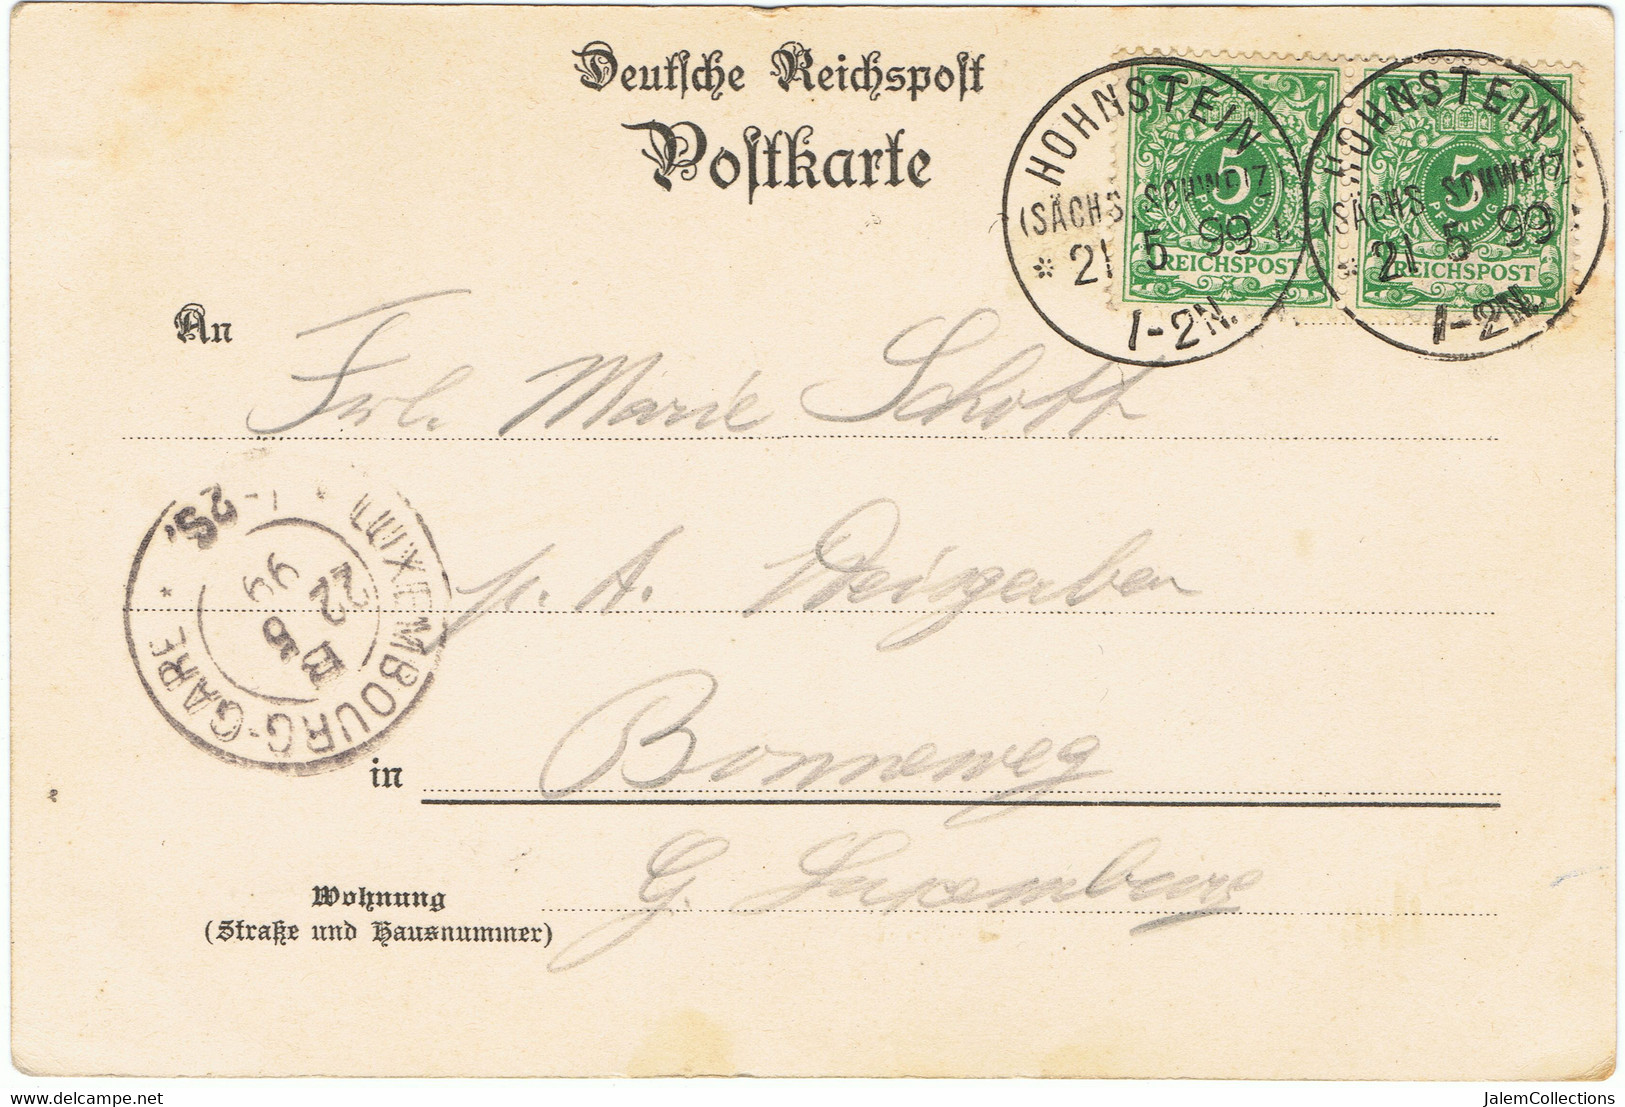 Deutsche Reichspost
Postkarte
HOHNSTEIN
(SÄCHS. SCHWEIZ)
* 21 5 99
1-2N.
5
PFENNIG
REICHSPOST
HOHNSTEIN
(SÄCHS. SCHWEIZ)
* 21 5 99
1-2N.
5
PFENNIG
REICHSPOST
An
Frl. Marie Schott
p. A. Weingerber
in Bonneweg
G. Luxemburg
Wohnung
(Straße und Hausnummer)
LUXEMBOURG-GARE *
1-2S.
22
5
99
JalemCollections